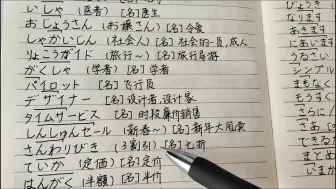 いしゃ (医者) [名]医生
おじょうさん (お嬢さん) [名]令爱
しゃかいじん (社会人) [名]社会的一员,成人
りょこうガイド (旅行～) [名]旅行导游
がくしゃ (学者) [名]学者
パイロット [名]飞行员
デザイナー [名]设计者,设计家
タイムサービス [名]时段廉价销售
しんしゅんセール (新春～) [名]新年大甩卖
さんわりびき (3割引) [名]七折
ていか (定価) [名]定价
はんがく (半額) [名]半价
なります
あきます
にあいます
うるさい
シンプル
まもなく
もうすぐ
さらに
さ
できる
まとめ
いま